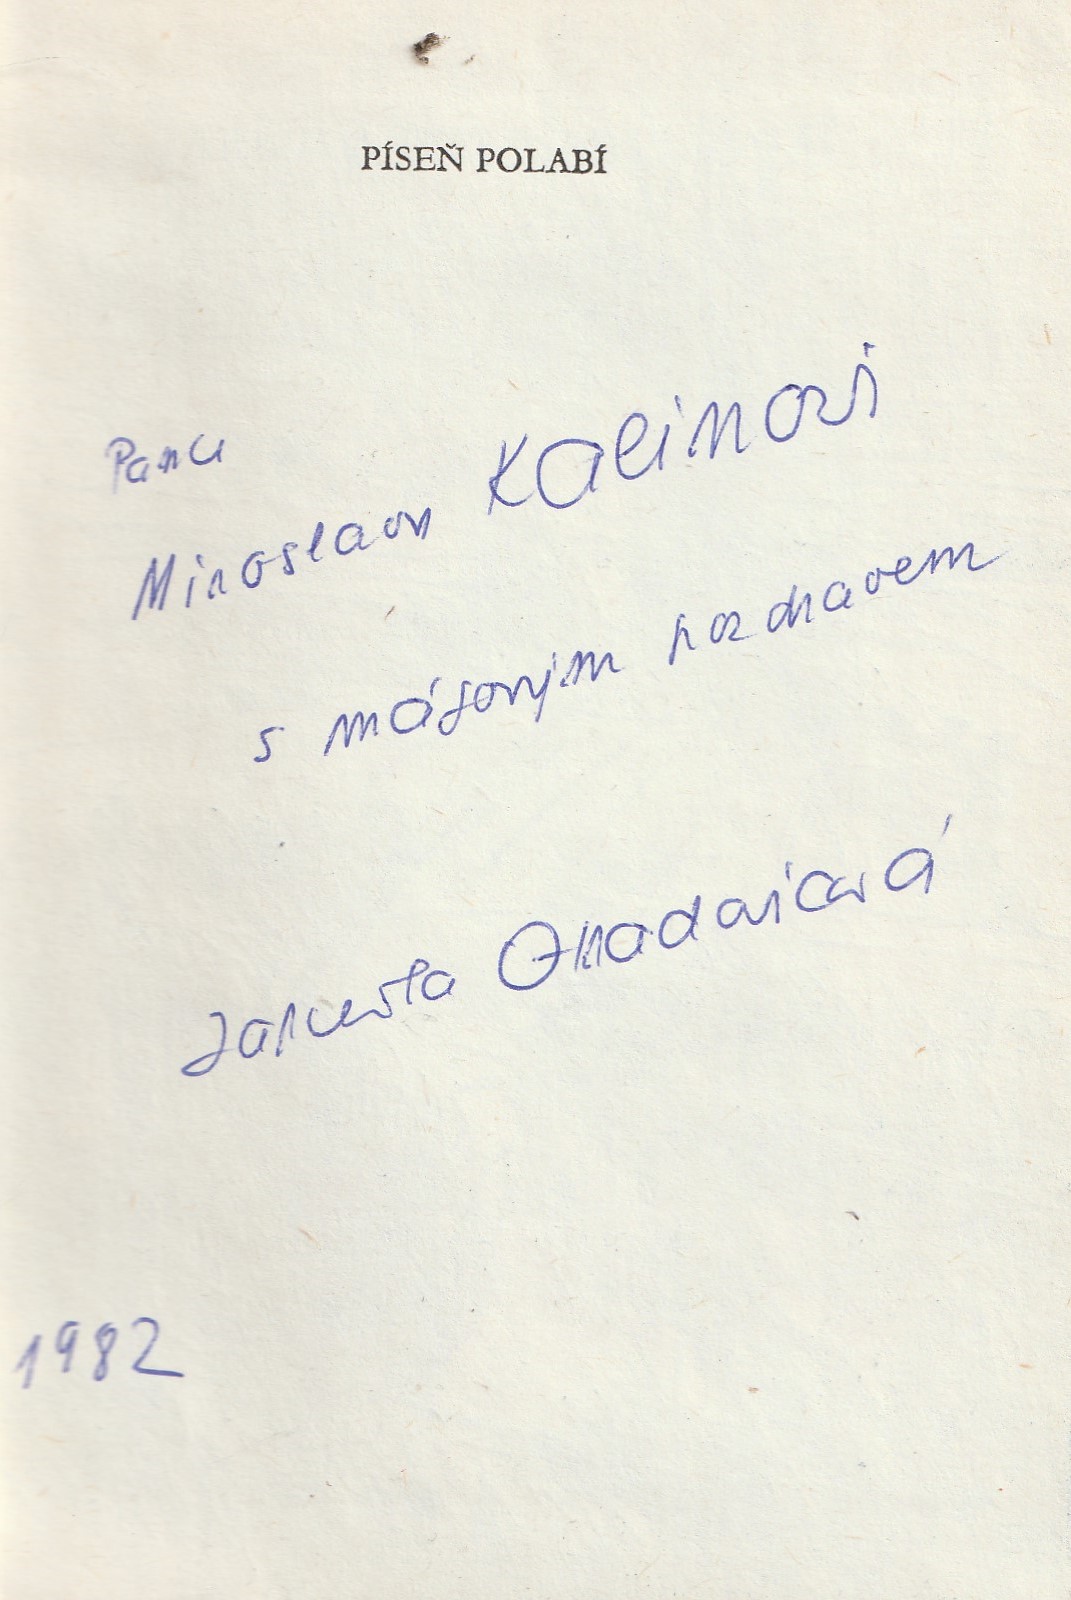 PÍSEŇ POLABÍ
Panu
Miroslavu Kalinovi
s májovým pozdravem
Jarmila Otradovicová
1982